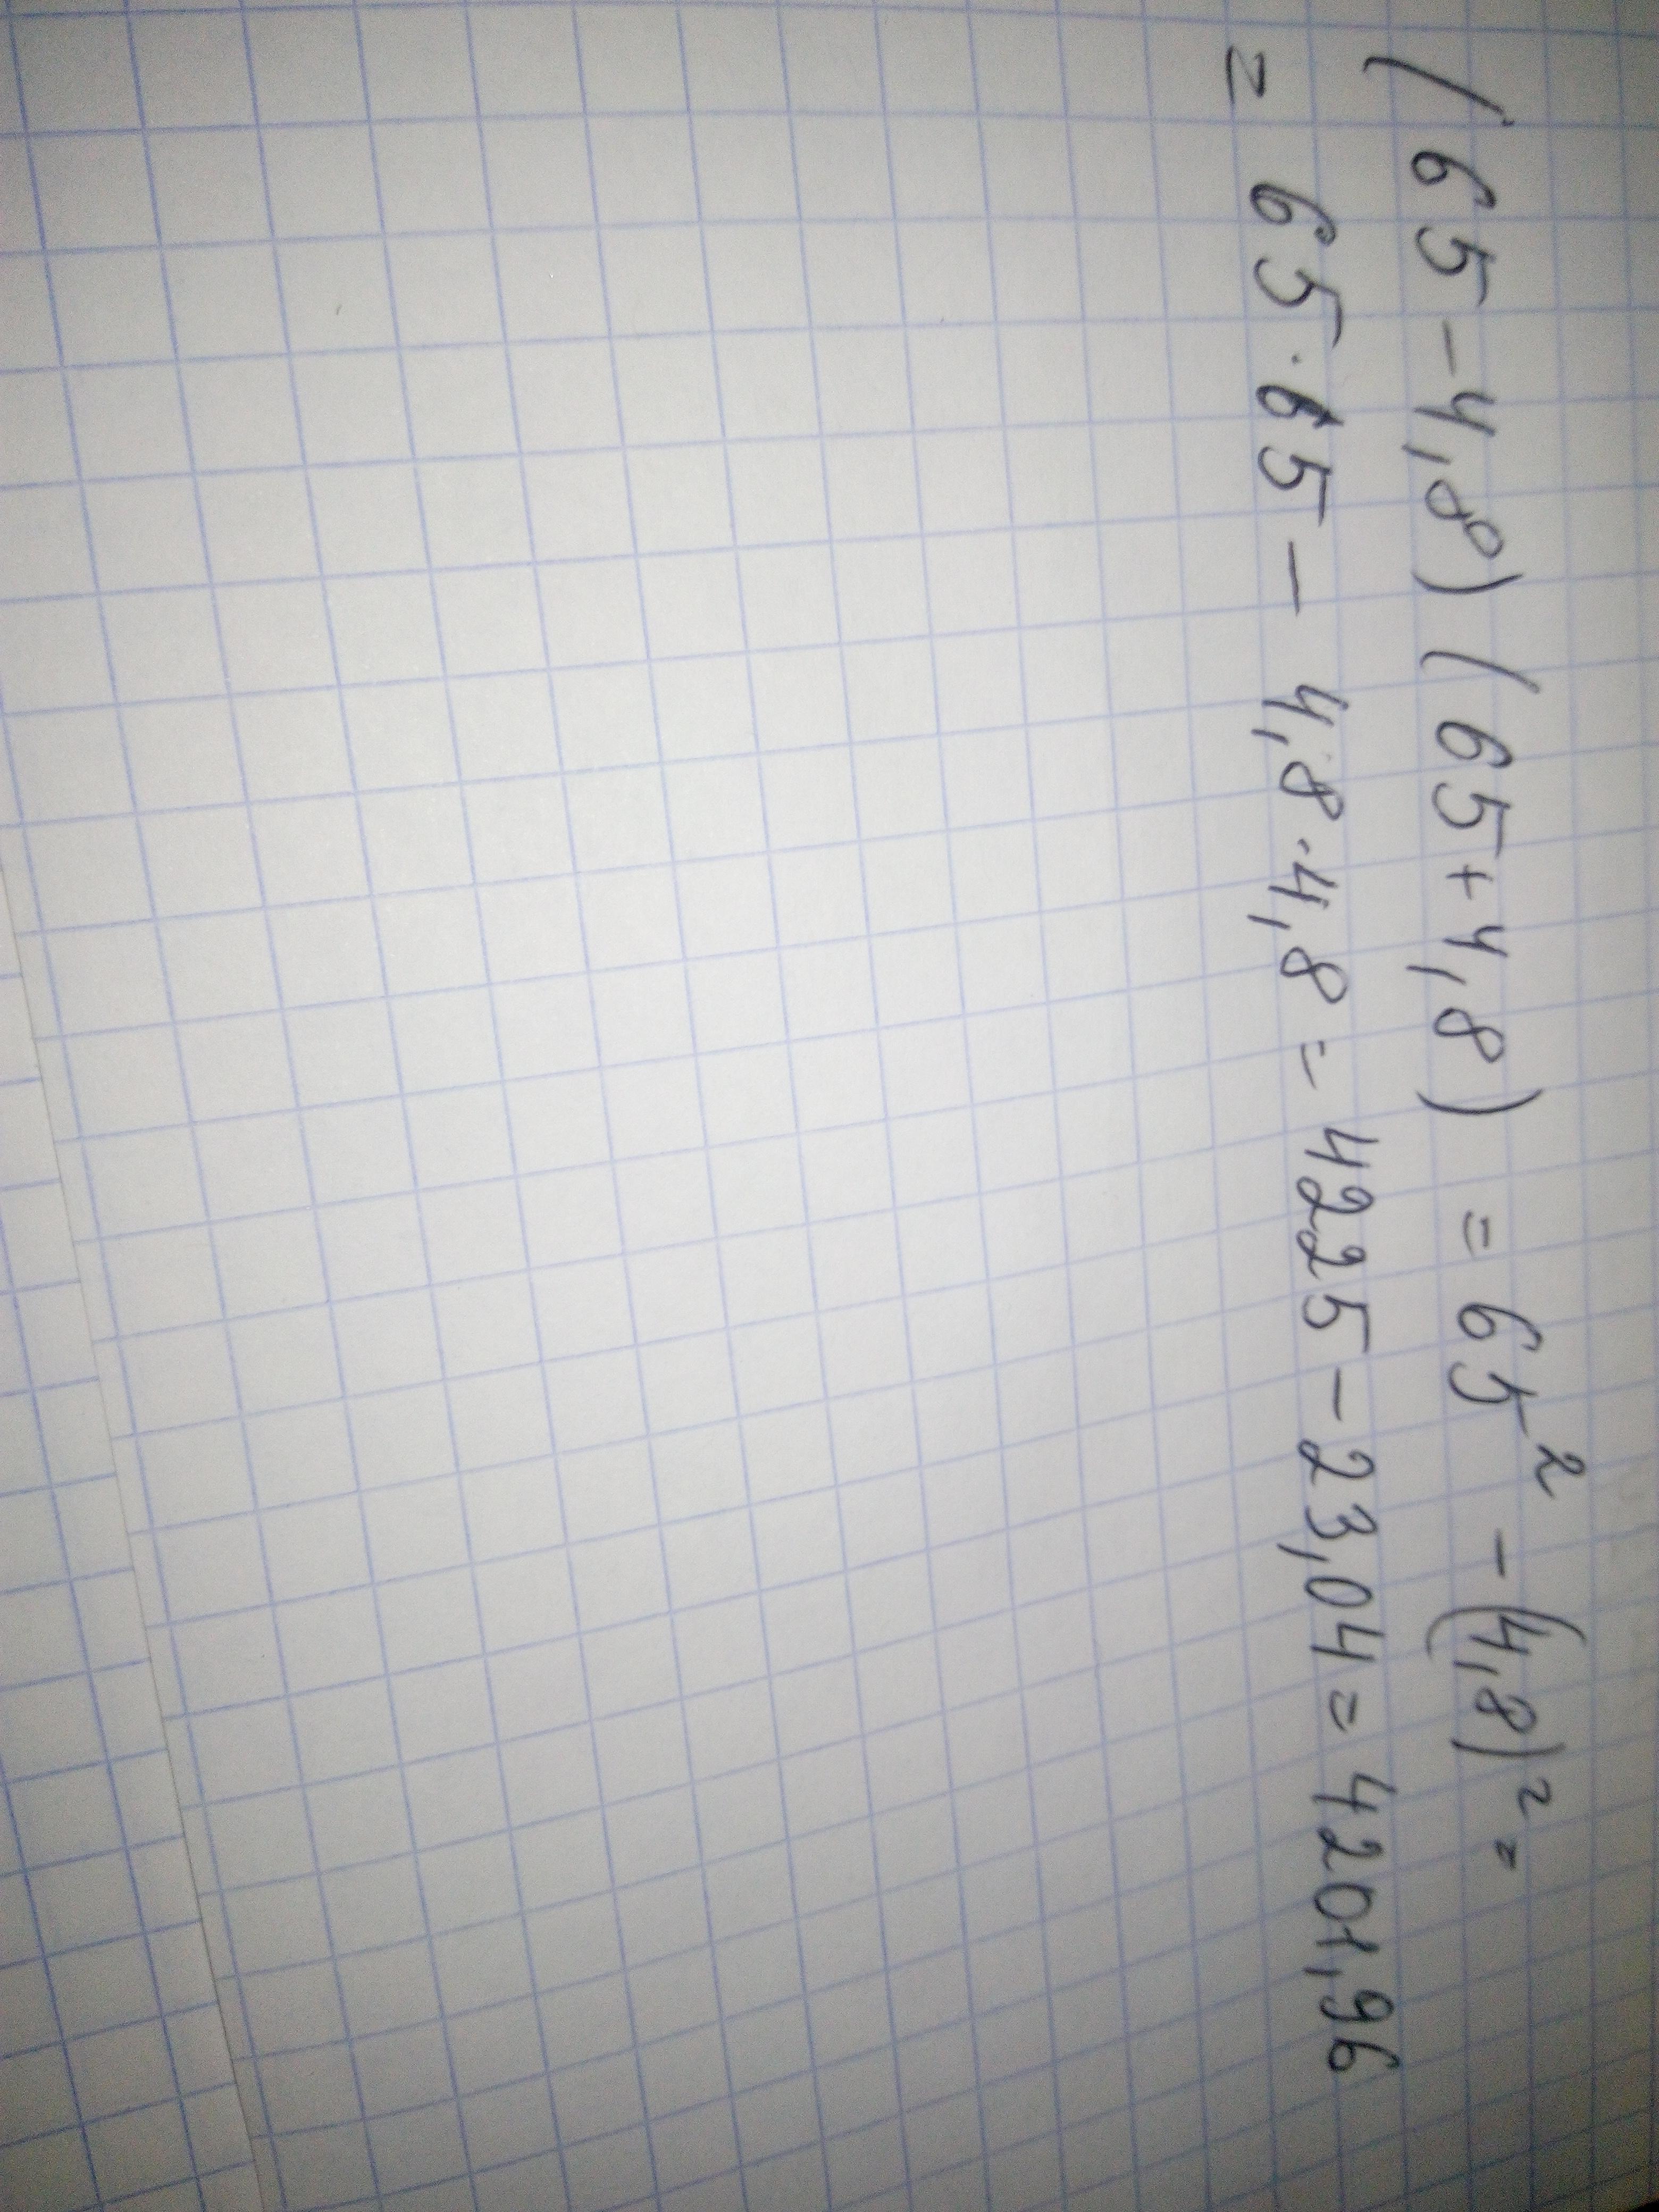 (65-4,8)(65+4,8) = 65² - (4,8)² =
= 65·65 - 4,8·4,8 = 4225 - 23,04 = 4201,96